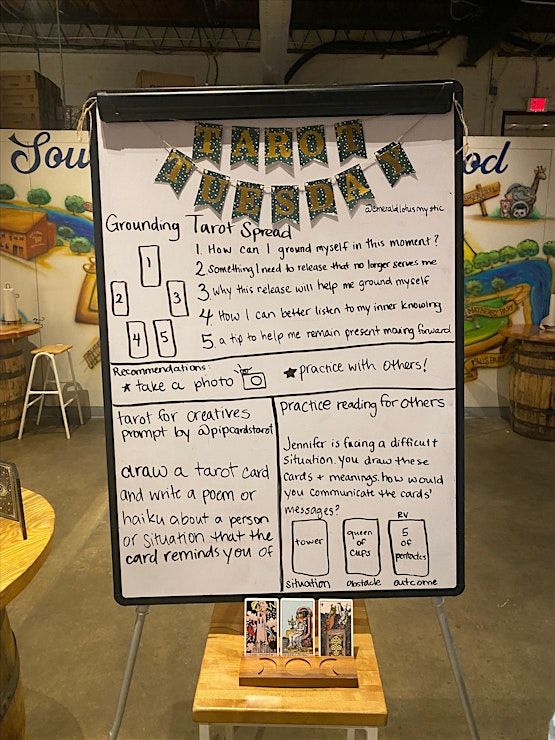 Sou
od
TAROT
TUESDAY
@emeraldlotusmystic
Grounding Tarot Spread
1
2
3
4
5
1. How can I ground myself in this moment?
2 Something I need to release that no longer serves me
3. Why this release will help me ground myself
4. How I can better listen to my inner knowing
5. a tip to help me remain present moving forward
Recommendations:
★ take a photo
★ practice with others!
tarot for creatives
prompt by @pipcardstarot
draw a tarot card
and write a poem or
haiku about a person
or situation that the
card reminds you of
practice reading for others
Jennifer is facing a difficult
situation. you draw these
cards + meanings. how would
you communicate the cards'
messages?
tower
queen
of
cups
RV
5
of
pentacles
situation
obstacle
outcome